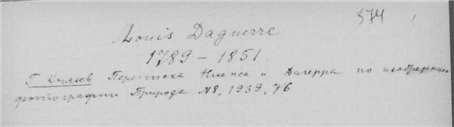 574
Louis Daguerre
1789 – 1851.
Г. Князев Переписка Ниепса и Дагерра по изобретению
фотографии Природа №8, 1939, 76